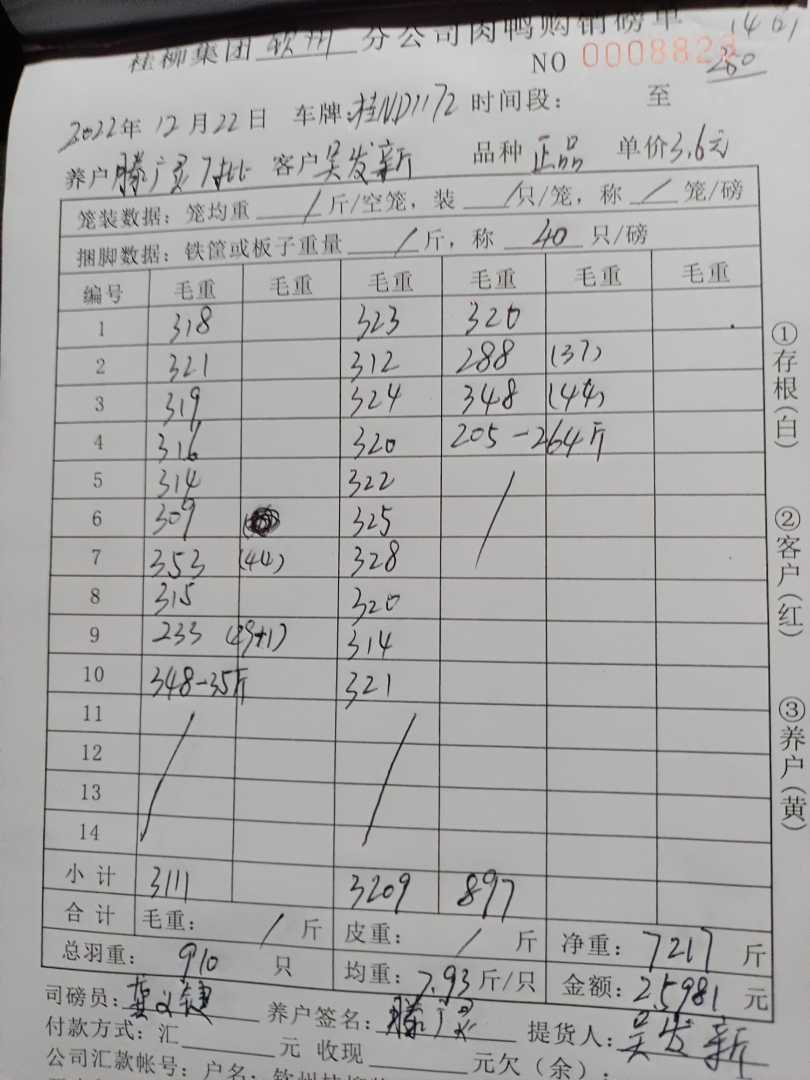 桂柳集团 钦州 分公司肉鸭购销磅单
NO 0008823
280
2022年 12月22日 车牌:桂ND1172 时间段: 至
养户 滕广灵7批 客户吴发新 品种 正品 单价3.6元
笼装数据:笼均重 / 斤/空笼,装 / 只/笼,称 / 笼/磅
捆脚数据:铁筐或板子重量 / 斤,称 40 只/磅
编号 毛重 毛重 毛重 毛重 毛重 毛重
1 318 323 320
2 321 312 288 (37)
3 319 324 348 (44)
4 316 320 205-264斤
5 314 322 /
6 309 325
7 353 (44) 328
8 315 320
9 233 (29+1) 314
10 348-35斤 321
11 / /
12
13
14
小计 3111 3209 897
合计 毛重: / 斤 皮重: / 斤 净重: 7217 斤
总羽重: 910 只 均重: 7.93 斤/只 金额: 25981 元
司磅员: 养户签名: 滕广灵 提货人: 吴发新
付款方式:汇 元 收现 元欠(余):
公司汇款帐号:户名:钦州桂柳
①存根(白)
②客户(红)
③养户(黄)